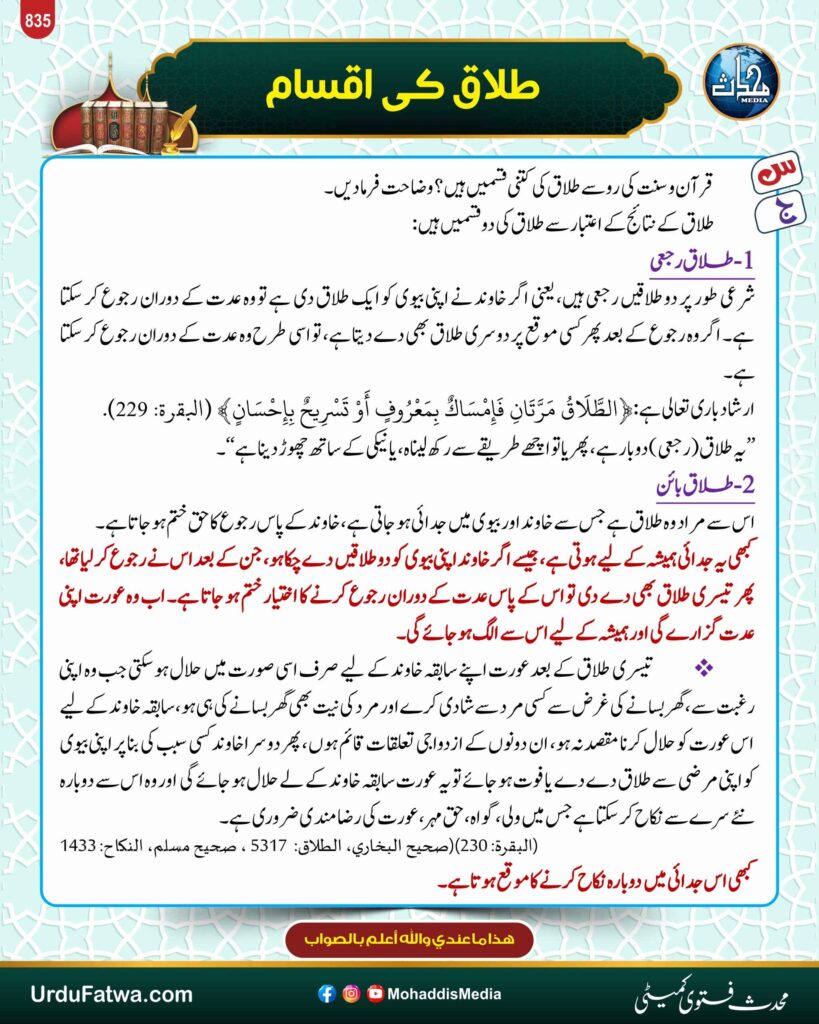 835
طلاق کی اقسام
محدث
MEDIA
س
قرآن و سنت کی رو سے طلاق کی کتنی قسمیں ہیں؟ وضاحت فرما دیں۔
ج
طلاق کے نتائج کے اعتبار سے طلاق کی دو قسمیں ہیں:
1- طلاق رجعی
شرعی طور پر دو طلاقیں رجعی ہیں، یعنی اگر خاوند نے اپنی بیوی کو ایک طلاق دی ہے تو وہ عدت کے دوران رجوع کر سکتا
ہے۔ اگر وہ رجوع کے بعد پھر کسی موقع پر دوسری طلاق بھی دے دیتا ہے، تو اسی طرح وہ عدت کے دوران رجوع کر سکتا
ہے۔
ارشاد باری تعالی ہے: ﴿الطَّلَاقُ مَرَّتَانِ فَإِمْسَاكٌ بِمَعْرُوفٍ أَوْ تَسْرِيحٌ بِإِحْسَانٍ﴾ (البقرة: 229).
”یہ طلاق (رجعی) دو بار ہے، پھر یا تو اچھے طریقے سے رکھ لینا ہ، یا نیکی کے ساتھ چھوڑ دینا ہے“۔
2- طلاق بائن
اس سے مراد وہ طلاق ہے جس سے خاوند اور بیوی میں جدائی ہو جاتی ہے، خاوند کے پاس رجوع کا حق ختم ہو جاتا ہے۔
کبھی یہ جدائی ہمیشہ کے لیے ہوتی ہے، جیسے اگر خاوند اپنی بیوی کو دو طلاقیں دے چکا ہو، جن کے بعد اس نے رجوع کر لیا تھا،
پھر تیسری طلاق بھی دے دی تو اس کے پاس عدت کے دوران رجوع کرنے کا اختیار ختم ہو جاتا ہے۔ اب وہ عورت اپنی
عدت گزارے گی اور ہمیشہ کے لیے اس سے الگ ہو جائے گی۔
❖ تیسری طلاق کے بعد عورت اپنے سابقہ خاوند کے لیے صرف اسی صورت میں حلال ہو سکتی جب وہ اپنی
رغبت سے، گھر بسانے کی غرض سے کسی مرد سے شادی کرے اور مرد کی نیت بھی گھر بسانے کی ہی ہو، سابقہ خاوند کے لیے
اس عورت کو حلال کرنا مقصد نہ ہو، ان دونوں کے ازدواجی تعلقات قائم ہوں، پھر دوسرا خاوند کسی سبب کی بنا پر اپنی بیوی
کو اپنی مرضی سے طلاق دے دے یا فوت ہو جائے تو یہ عورت سابقہ خاوند کے لے حلال ہو جائے گی اور وہ اس سے دوبارہ
نئے سرے سے نکاح کر سکتا ہے جس میں ولی، گواہ، حق مہر، عورت کی رضامندی ضروری ہے۔
(البقرة: 230)(صحيح البخاري، الطلاق: 5317 ، صحيح مسلم، النكاح: 1433
کبھی اس جدائی میں دوبارہ نکاح کرنے کا موقع ہوتا ہے۔
هذا ما عندي والله أعلم بالصواب
UrduFatwa.com
MohaddisMedia
محدث فتویٰ کمیٹی